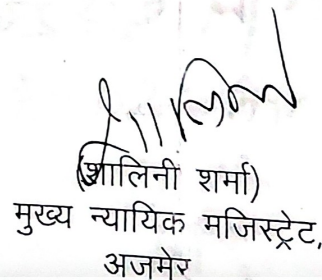 (शालिनी शर्मा)
मुख्य न्यायिक मजिस्ट्रेट,
अजमेर